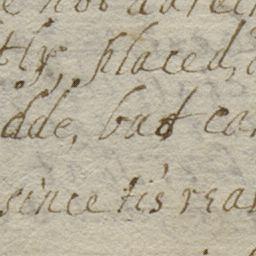 e not
tly, placed,
dde, but ca
since tis rea